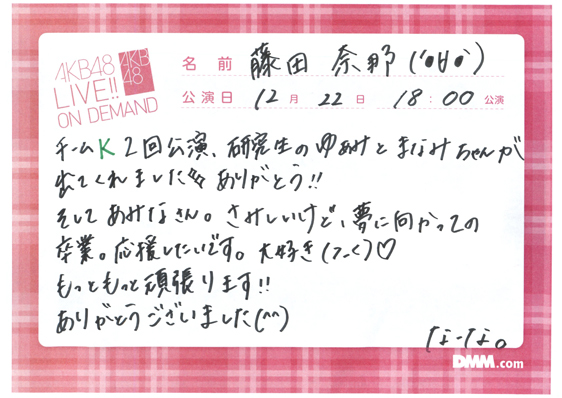 AKB48
LIVE!!
ON DEMAND
AKB
48
名前 藤田 奈那 (´●∀●`)
公演日 12月 22日 18:00 公演
チームK 2回公演、研究生のゆあみとまなみちゃんが
出てくれました ありがとう!!
そしてあみなさん。さみしいけど、夢に向かっての
卒業。応援したいです。大好き(>_<)♡
もっともっと頑張ります!!
ありがとうございました(^^)
なーな。
DMM.com